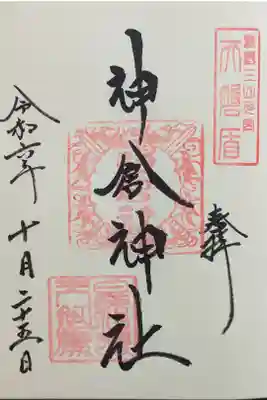 天磐盾
奉拝
神倉神社
令和六年十月二十五日